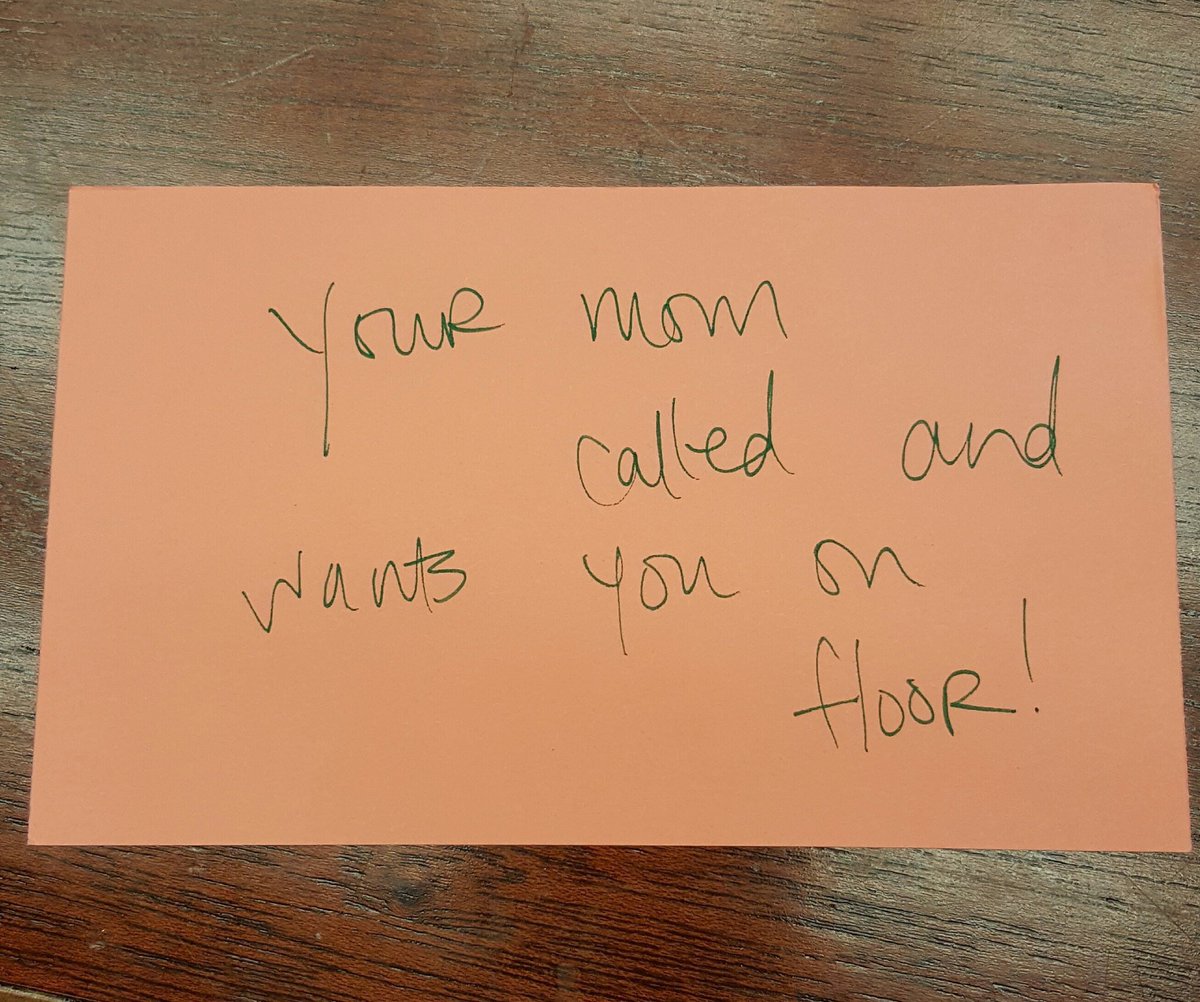 your mom
called and
wants you on
floor!